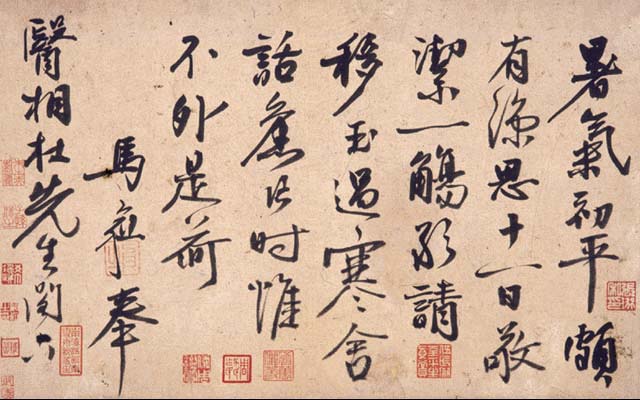 暑氣初平頗
有涼思十一日敬
潔一觴請
移玉過寒舍
話舊片时惟
不外是荷
馬愈奉
醫相杜先生閣下